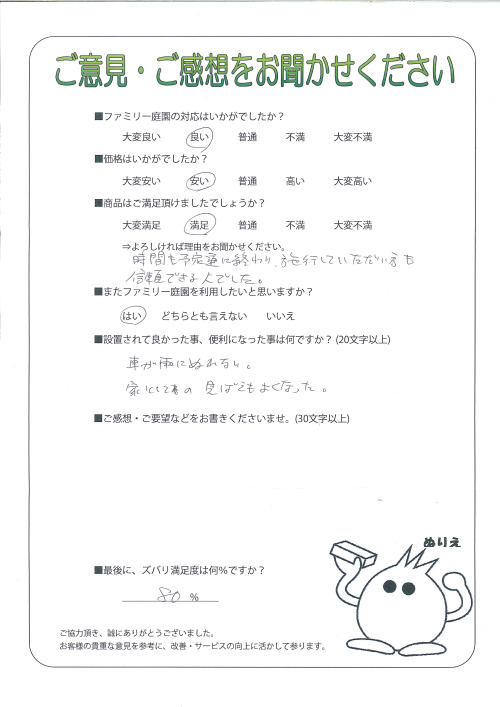 ご意見・ご感想をお聞かせください
■ファミリー庭園の対応はいかがでしたか？
大変良い 良い 普通 不満 大変不満
■価格はいかがでしたか？
大変安い 安い 普通 高い 大変高い
■商品はご満足頂けましたでしょうか？
大変満足 満足 普通 不満 大変不満
⇒よろしければ理由をお聞かせください。
時間も予定通に終わり、施行していただい方も
信頼できる人でした。
■またファミリー庭園を利用したいと思いますか？
はい どちらとも言えない いいえ
■設置されて良かった事、便利になった事は何ですか？(20文字以上)
車が雨にぬれない。
家 の 見ばえもよくなった。
■ご感想・ご要望などをお書きくださいませ。(30文字以上)
ぬりえ
■最後に、ズバリ満足度は何％ですか？
80 %
ご協力頂き、誠にありがとうございました。
お客様の貴重な意見を参考に、改善・サービスの向上に活かして参ります。